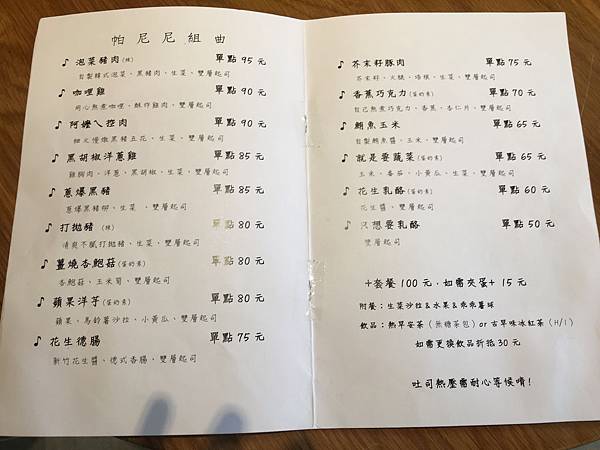 帕尼尼組曲
♪ 泡菜豬肉(辣) 單點 95 元
自製韓式泡菜、黑豬肉、生菜、雙層起司
♪ 咖哩雞 單點 90 元
用心熬煮咖哩、酥炸雞肉、雙層起司
♪ 阿嬤ㄟ控肉 單點 90 元
細火慢燉黑豬五花、生菜、雙層起司
♪ 黑胡椒洋蔥雞 單點 85 元
雞胸肉、洋蔥、黑胡椒、生菜、雙層起司
♪ 蔥爆黑豬 單點 85 元
蔥爆黑豬柳、生菜、雙層起司
♪ 打拋豬 (辣) 單點 80 元
清爽不膩打拋豬、生菜、雙層起司
♪ 薑燒杏鮑菇(蛋奶素) 單點 80 元
杏鮑菇、玉米筍、雙層起司
♪ 蘋果洋芋(蛋奶素) 單點 80 元
蘋果、馬鈴薯沙拉、小黃瓜、雙層起司
♪ 花生德腸 單點 75 元
新竹花生醬、德式香腸、雙層起司
♪ 芥末籽豚肉 單點 75 元
芥末籽、火腿、培根、生菜、雙層起司
♪ 香蕉巧克力(蛋奶素) 單點 70 元
自己熬煮巧克力、香蕉、杏仁片、雙層起司
♪ 鮪魚玉米 單點 65 元
自製鮪魚醬、玉米、雙層起司
♪ 就是要蔬菜(蛋奶素) 單點 65 元
玉米、番茄、小黃瓜、生菜、雙層起司
♪ 花生乳酪(蛋奶素) 單點 60 元
花生醬、雙層起司
♪ 只想要乳酪 單點 50 元
雙層起司
+套餐 100 元，如需夾蛋+ 15 元
附餐：生菜沙拉&水果&乖乖薯球
飲品：熱早安茶（無糖茶包）or 古早味冰紅茶（H/I）
如需更換飲品折抵 30 元
吐司熱壓需耐心等候唷！